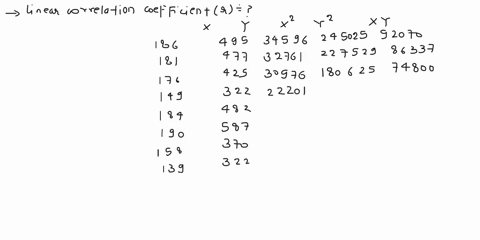 → linear correlation coefficient (r) = ?
X Y X² Y² XY
186 495 34596 245025 92070
181 477 32761 227529 86337
176 425 30976 180625 74800
149 322 22201
184 482
190 587
158 370
139 322